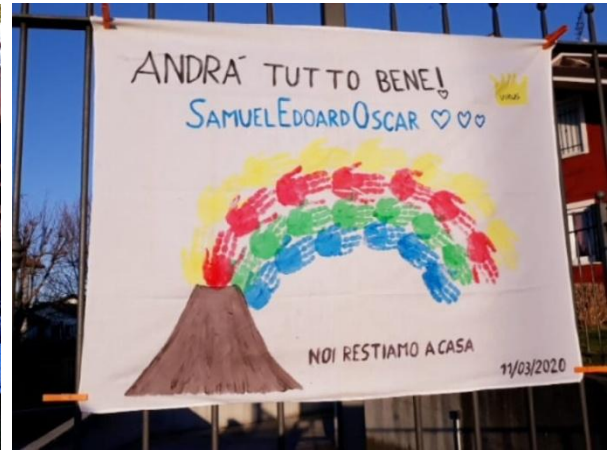 ANDRÁ TUTTO BENE!
SAMUELEDOARDOSCAR
VIRUS
NOI RESTIAMO A CASA
11/03/2020